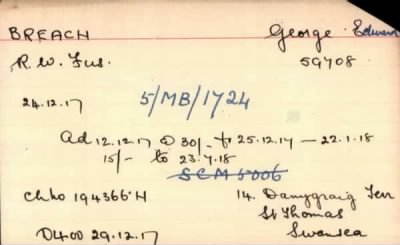 BREACH George Edward
R. W. Fus. 59708
24.12.17 5/MB/1724
ad 12.12.17 @ 30/- to 25.12.17 — 22.1.18
15/- to 23.7.18
SCM 5006
Chho 194366 H 14. Danygraig Terr
St Thomas
D400 29.12.17 Swansea